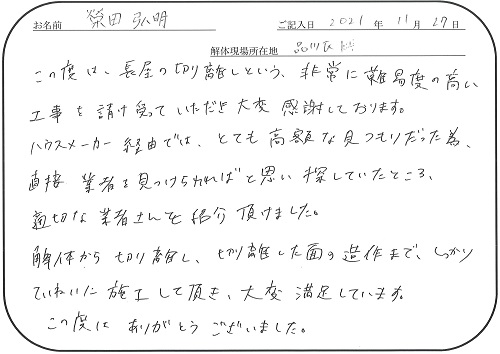 お名前 榮田 弘明 ご記入日 2021 年 11 月 27 日
解体現場所在地 品川区
この度は、長屋の切り離しという、非常に難易度の高い
工事を請け負っていただき大変 感謝しております。
ハウスメーカー経由では、とても高額な見つもりだった為、
直接 業者を見つけられればと思い探していたところ、
適切な業者さんを紹介頂けました。
解体から切り離し、切り離した面の造作まで、しっかり
ていねいに施工して頂き、大変満足しています。
この度は ありがとうございました。